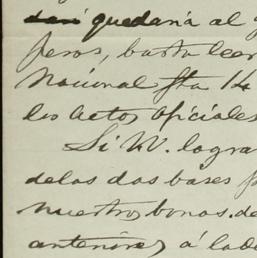 quedaria al
pesos, basta leer
Nacional fha 14
los actos oficiales
Si VV. logra
de las dos bases p
nuestros bonos. de
anteriores á lado